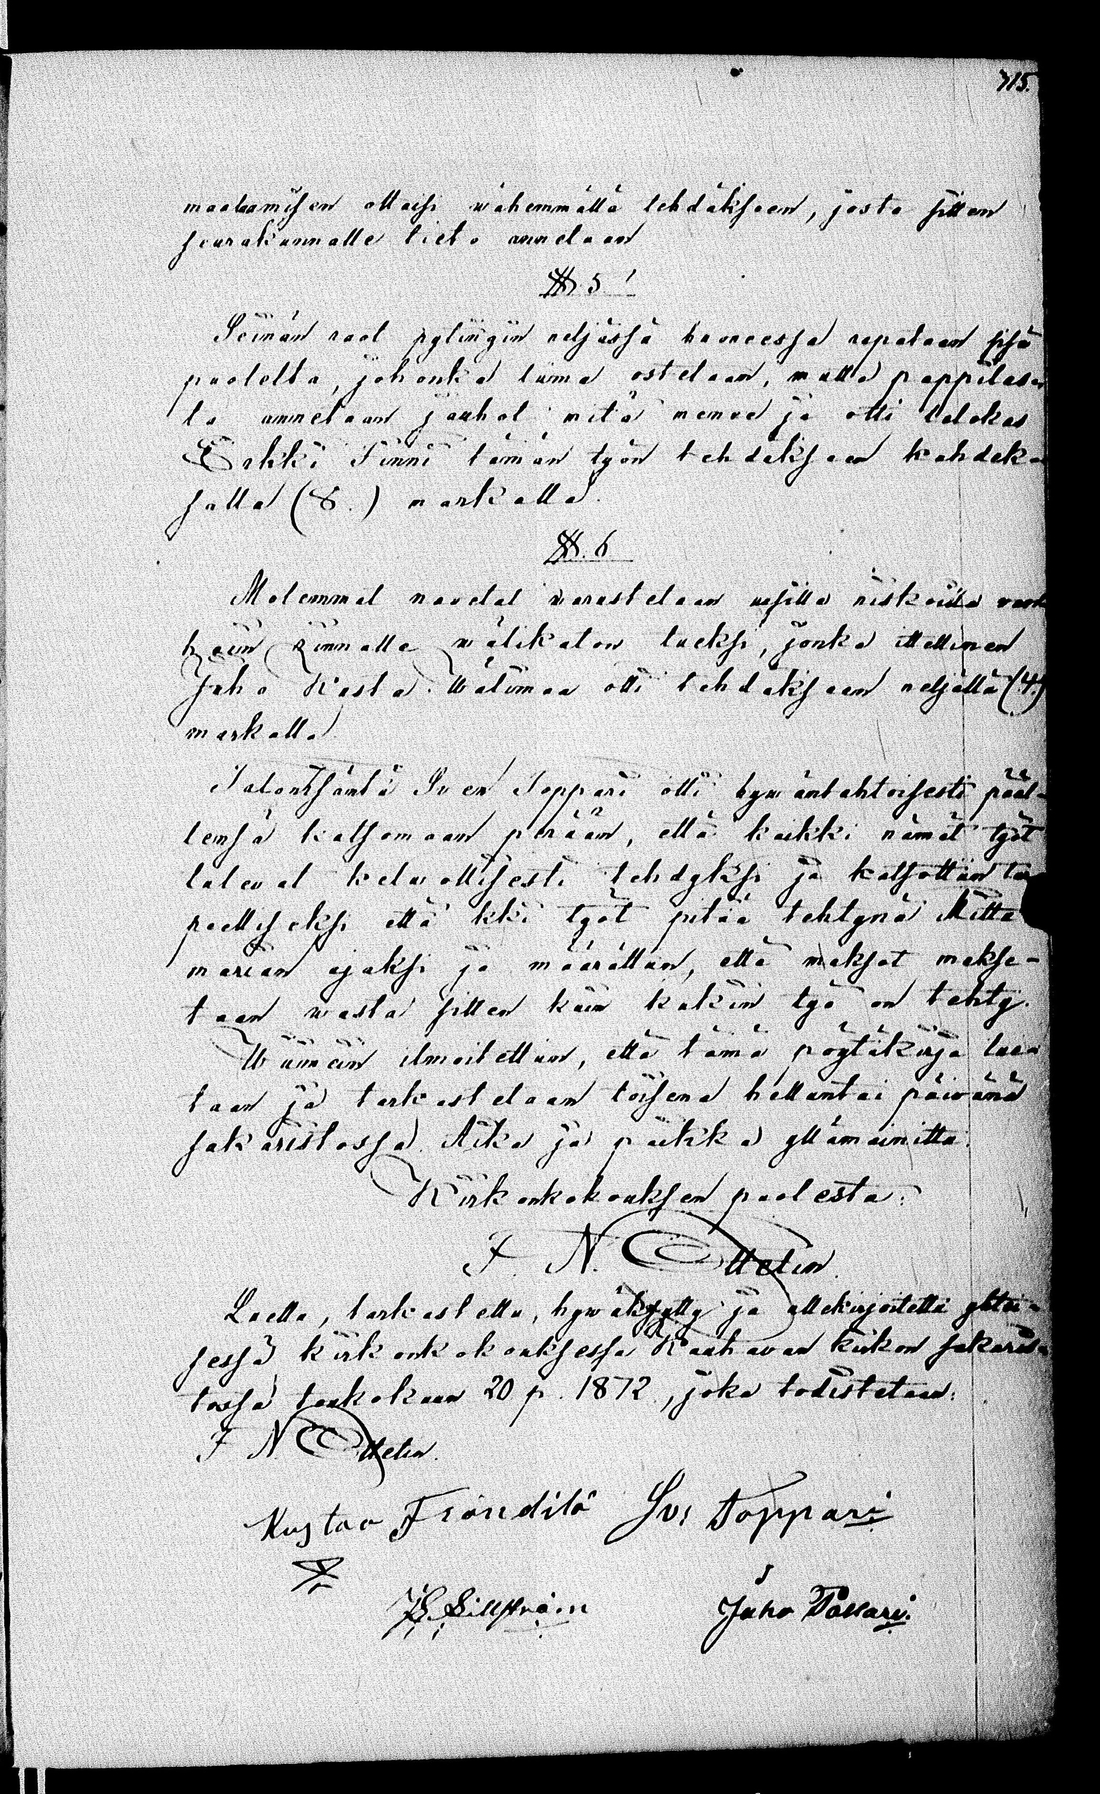 715.
maalaamisen ottaisi wähemmällä tehdäkseen, josta sitten
seurakunnalle tieto annetaan
§. 5
Seinän raot pytingin neljässä huoneessa rapataan sisä
puolelta, johonka liima ostetaan, mutta pappilas-
ta annetaan jauhot mitä menee ja otti talokas
Erkki Finni tämän työn tehdäkseen kahdek-
salla (8.) markalla.
§. 6
Molemmat navetat warustetaan uusilla
rinnalle wälikaton tueksi, jonka ittellinen
Juho Kasta Wälimaa otti tehdäkseen neljällä (4.)
markalla.
Talonisäntä Sven Toppari otti hywäntahtoisesti pääl-
lensä katsomaan perään, että kaikki nämät työt
tulewat kelwollisesti tehdyksi ja katsottiin tar
peelliseksi että kki työt pitää tehtynä Mitta
marian ajaksi ja määrättiin, että maksot makse-
taan wasta sitten kuin kukin työ on tehty.
Wiimein ilmoitettiin, että tämä pöytäkirja lue
taan ja tarkastetaan toisena helluntai päiwänä
sakaristossa. Aika ja paikka yllämainittu.
Kirkonkokouksen puolesta:
F. N. Ottelin.
Luettu, tarkastettu, hywäksytty ja allekirjoitettu yhtei-
sessä kirkonkokouksessa Kauhawan kirkon sakaris-
tossa toukokuun 20 p. 1872, joka todistetaan:
F N Ottelin.
Kustaa Fröndilä Sv; Toppari
Sillström Juho Passari.